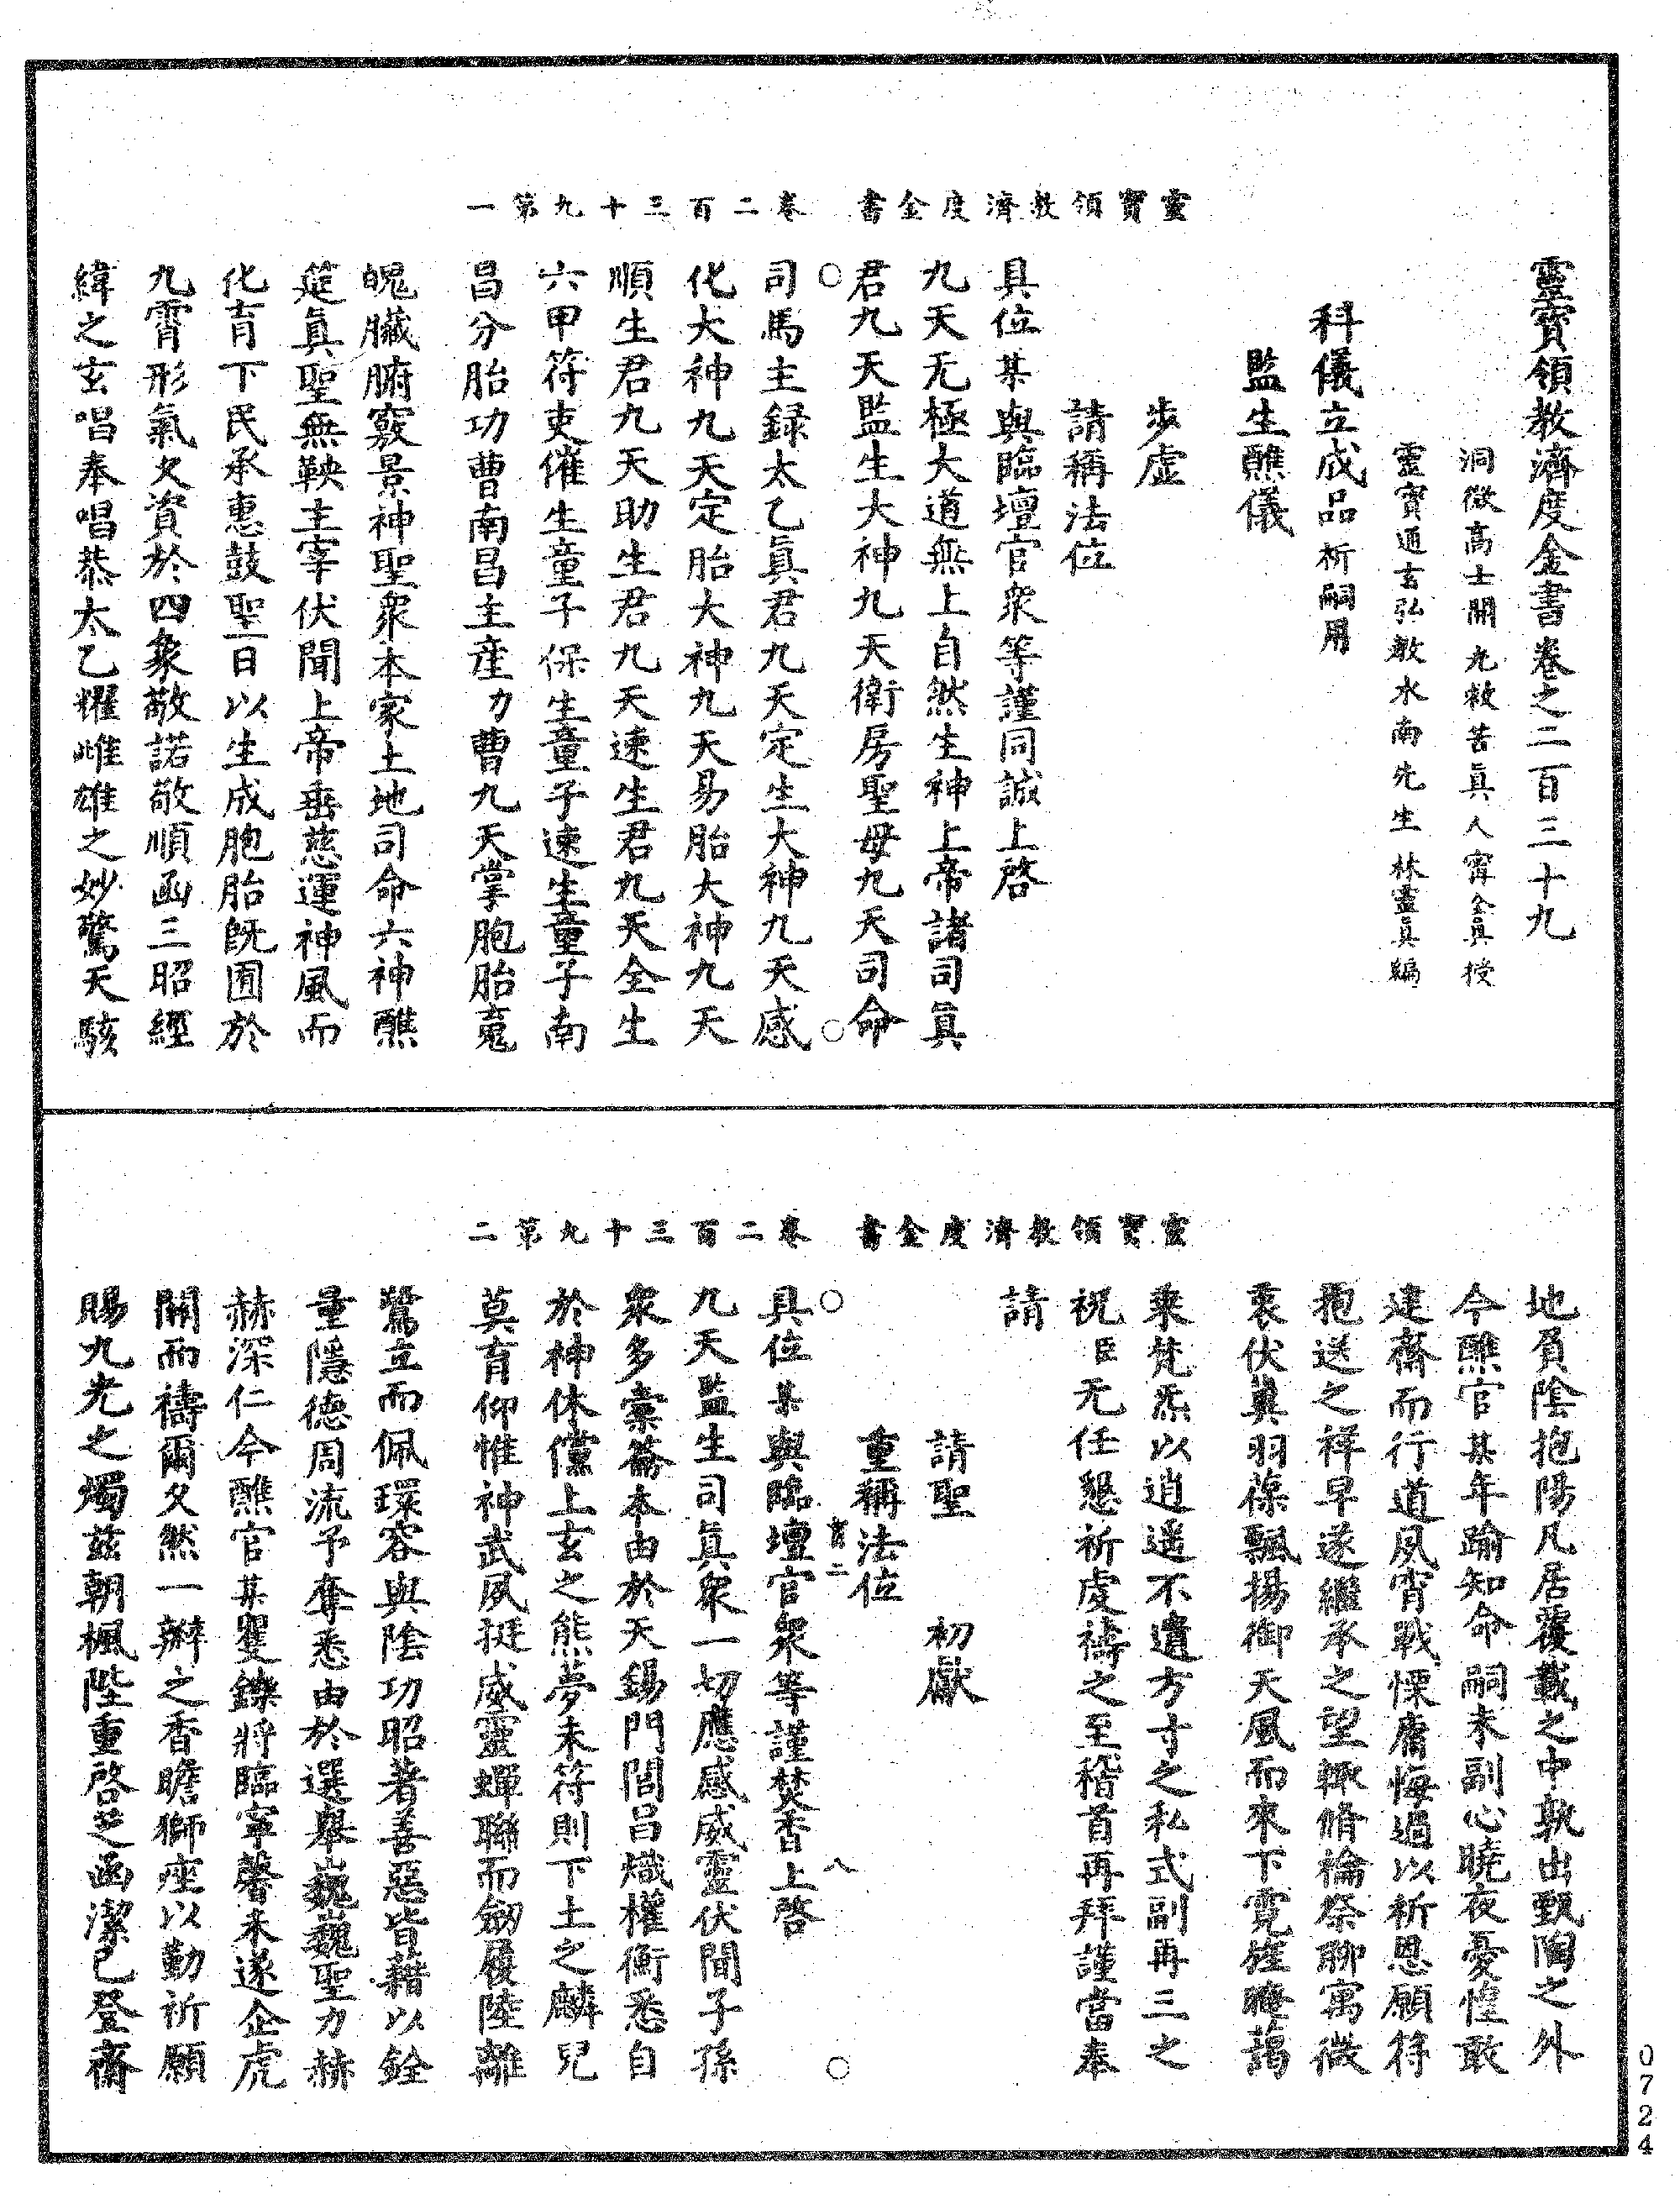 靈寶領教濟度金書 卷二百三十九第一
靈寶領教濟度金書卷之二百三十九
洞微高士開光救苦真人甯全真授
靈寶通玄弘教水南先生林靈真編
科儀立成品祈嗣用
監生醮儀
步虛
請稱法位
具位某與臨壇官衆等謹同誠上啓
九天无極大道無上自然生神上帝諸司真
君九天監生大神九天衛房聖母九天司命
司馬主録太乙真君九天定生大神九天感
化大神九天定胎大神九天易胎大神九天
順生君九天助生君九天速生君九天全生
六甲符吏催生童子保生童子速生童子南
昌分胎功曹南昌主産力曹九天掌胞胎䰟
魄臟腑竅景神聖衆本家土地司命六神醮
筵真聖無鞅主宰伏聞上帝垂慈運神風而
化育下民承惠鼓聖日以生成胞胎旣囿於
九霄形氣攵資於四象敬諾敬順函三昭經
緯之玄唱奉唱恭太乙耀雌雄之妙驚天駭
靈寶領教濟度金書 卷二百三十九第二
地負陰抱陽凡居覆載之中孰出甄陶之外
今醮官某年踰知命嗣未副心曉夜憂惶敢
建齋而行道夙宵戰慄庸悔過以祈恩願符
抱送之祥早遂繼承之望輙脩禴祭聊寓微
衷伏兾羽葆飄揚御天風而來下霓旌晻藹
乘梵炁以逍遥不遺方寸之私式副再三之
祝臣无任懇祈虔禱之至稽首再拜謹當奉
請
請聖 初獻
重稱法位
具位某與臨壇官衆等謹焚香上啓
九天監生司真衆一切應感威靈伏聞子孫
衆多稟蕭本由於天錫門閭昌熾權衡悉自
於神休儻上玄之熊夢未符則下土之麟兒
莫育仰惟神武夙挺威靈蟬聯而劒履陸離
鷺立而佩環容與陰功昭著善惡皆藉以銓
量隱德周流予奪悉由於選舉巍巍聖力赫
赫深仁今醮官某矍鑠將臨寧馨未遂企虎
關而禱爾攵然一瓣之香瞻獅座以勤祈願
賜九光之燭兹朝楓陛重啓芝函潔已登齋
0724